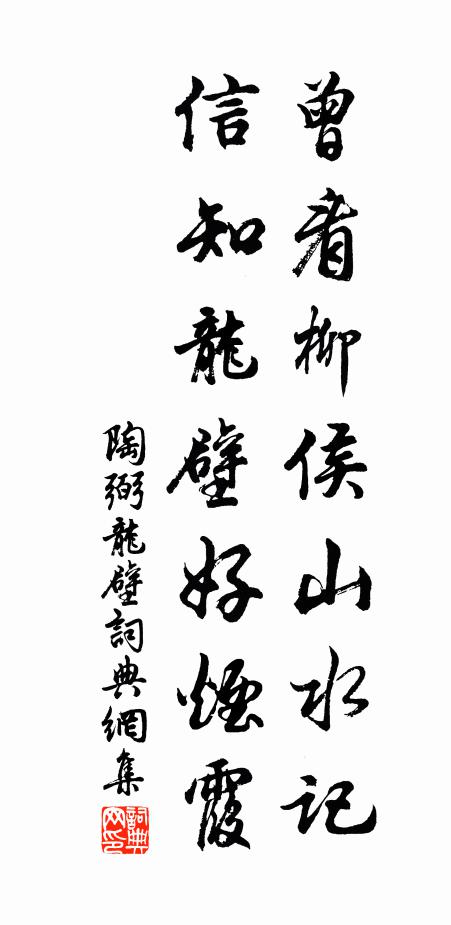 曾看柳侯山水記
信知龍壁好煙霞
陶弼龍壁詞典網集
詞典網印